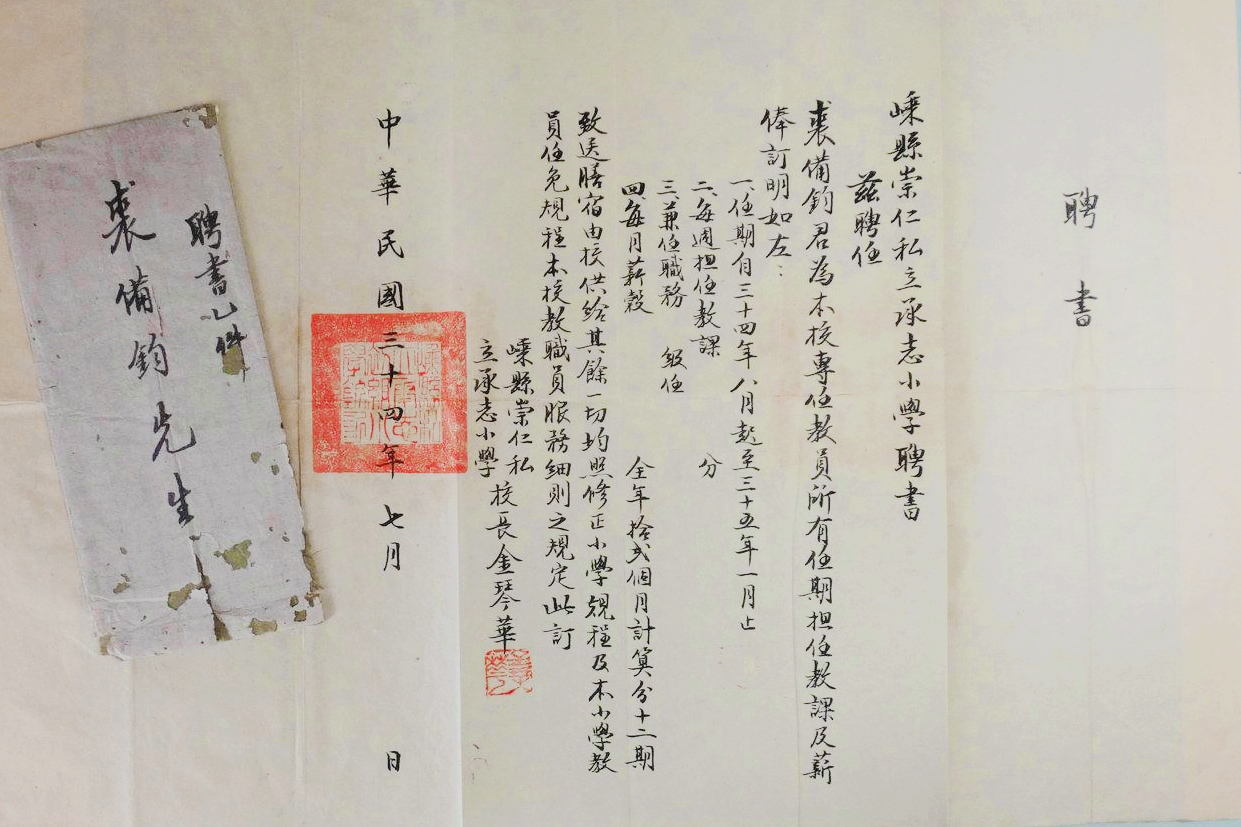 聘書
嵊縣崇仁私立承志小學聘書
茲聘任
裘備鈞君為本校專任教員所有任期担任教課及薪
俸訂明如左：
一、任期自三十四年八月起至三十五年一月止
二、每週担任教課 分
三、兼任職務 級任
四、每月薪穀 全年拾弍個月計算分十二期
致送膳宿由校供給其餘一切均照修正小學規程及本小學教
員任免規程本校教職員服務細則之規定此訂
嵊縣崇仁私
立承志小學
校長金琴華
中華民國三十四年七月 日
聘書乙件
裘備鈞先生